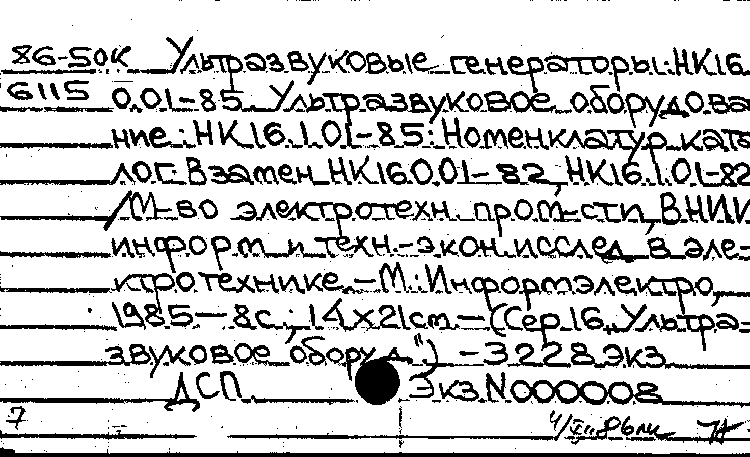 86-50К Ультразвуковые генераторы: НК16.
6115 0.01-85. Ультразвуковое оборудова
ние: НК16.1.01-85: Номенклатур. ката
лог: Взамен НК16.0.01-82, НК16.1.01-82
/М-во электротехн. пром-сти, ВНИИ
информ. и техн.-экон. исслед. в эле-
ктротехнике.-М.: Информэлектро,
1985-8с.; 14х21см.-(Сер. 16, „Ультра-
звуковое оборуд.") -3228экз.
ДСП. Экз.N000008
7